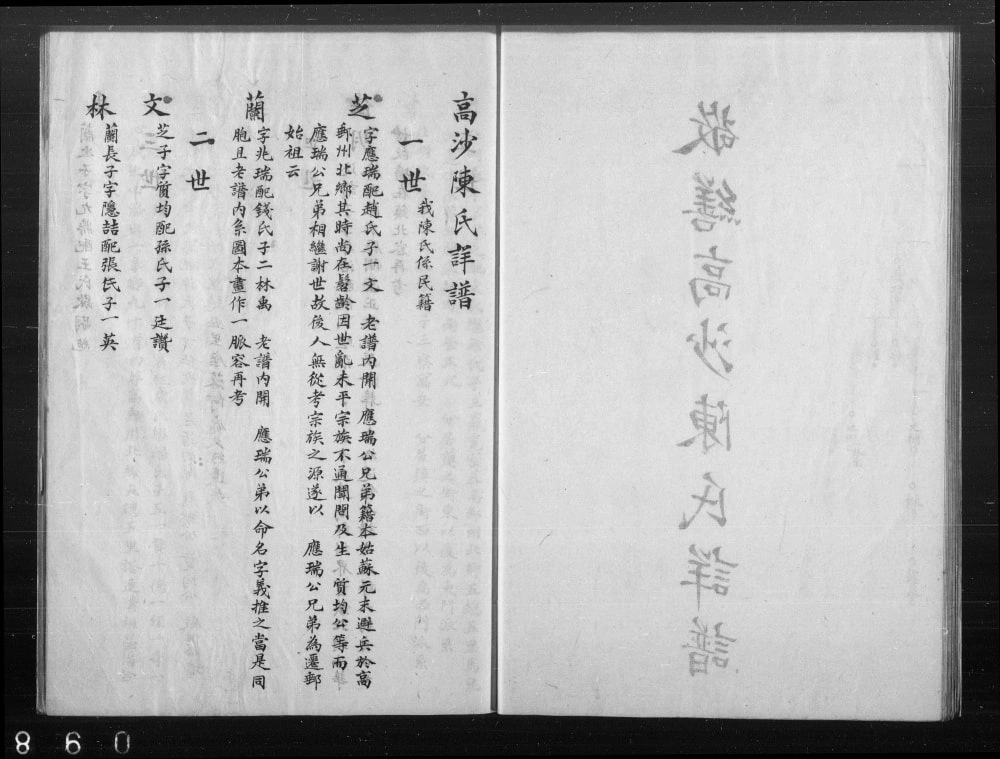 敬繕高沙陳氏詳譜
高沙陳氏詳譜
一世 我陳氏係民籍
芝 字應瑞配趙氏子一文 老譜內開應瑞公兄弟籍本姑蘇元末避兵於高
郵州北鄉其時尚在髫齡因世亂未平宗族不通聞問及生 質均公等而
應瑞公兄弟相繼謝世故後人無從考宗族之源遂以 應瑞公兄弟為遷郵
始祖云
蘭 字兆瑞配錢氏子二林禹 老譜內開 應瑞公弟以命名字義推之當是同
胞且老譜內系圖本畫作一脈容再考
二世
文 芝子字質均配孫氏子一廷讚
林 蘭長子字隱喆配張氏子一英
860